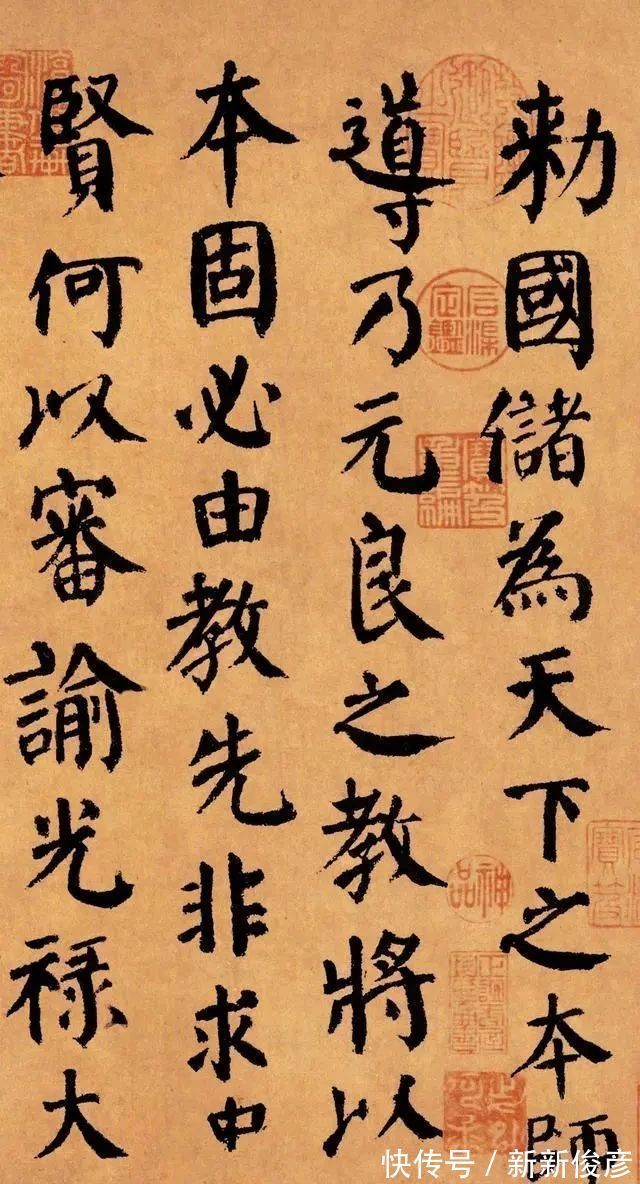 勑國儲為天下之本師
導乃元良之教將以
本固必由教先非求中
賢何以審諭光禄大
神品
快传号 / 新新俊彦